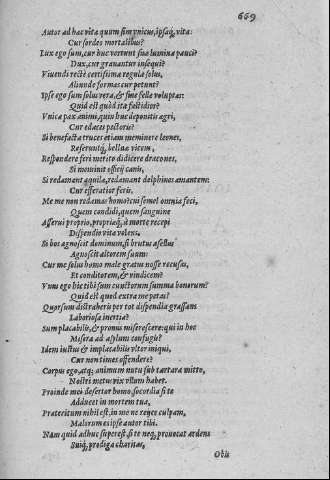 669
Autor ad hac vita quum sim vnicus, ipsaq́, vita:
Cur sordes mortalibus?
Lux ego sum, cur huc vertunt sua lumina pauci?
Dux, cur grauantur insequi?
Viuendi rectè certissima regula solus,
Aliunde formas cur petunt?
Ipse ego sum solus vera, & sine felle voluptas:
Quid est quòd ita fastidior?
Vnica pax animi, quin huc deponitis agri,
Cur edaces pectoris?
Si benefacta truces etiam meminere leones,
Referuntq́, belluæ vicem,
Respondere feri merito didicere dracones,
Si meminit officij canis,
Si redamant aquilæ, redamant delphines amantem:
Cur efferatior feris,
Me me non redamas homo: cui semel omnia feci,
Quem condidi, quem sanguine
Asserui proprio, propriaq́, à morte recepi
Dispendio vitæ volens.
Si bos agnoscit dominum, si brutus asellus
Agnoscit altorem suum:
Cur me solus homo male gratus nosse recusas,
Et conditorem, & vindicem?
Vnus ego hic tibi sum cunctorum summa bonorum?
Quid est quod extra me petas?
Quorsum distraheris per tot dispendia grassans
Laboriosa inertia?
Sum placabilis, & pronus miserescere: qui in hoc
Misera ad asylum confugis?
Idem iustus & implacabilis vltor iniqui,
Cur non times offendere?
Corpus ego, atq; animum nutu sub tartara mitto,
Nostri metus vix vllum habet.
Proinde mei desertor homo, socordia si te
Adducet in mortem tua,
Præteritum nihil est, in me ne reijce culpam,
Malorum es ipse autor tibi.
Nam quid adhuc superest, si te neq́, prouocat ardens
Suiq́, prodiga charitas,
Obli